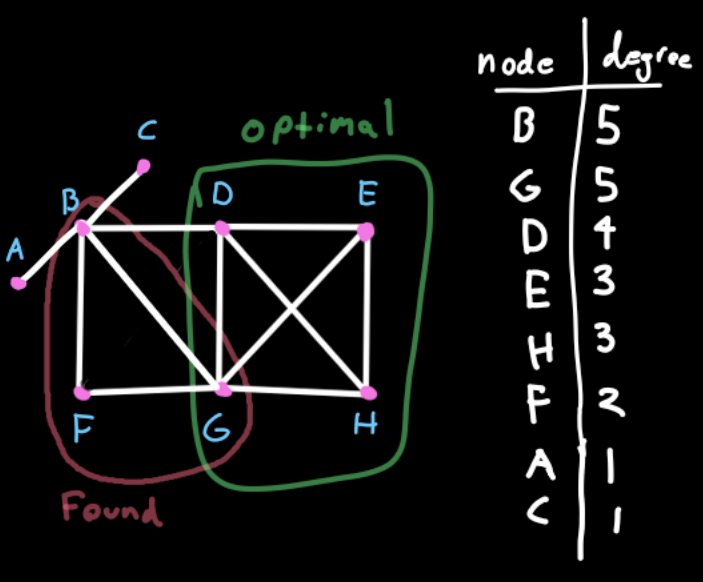 optimal
C
B
D
E
A
F
G
H
Found
node degree
B 5
G 5
D 4
E 3
H 3
F 2
A 1
C 1